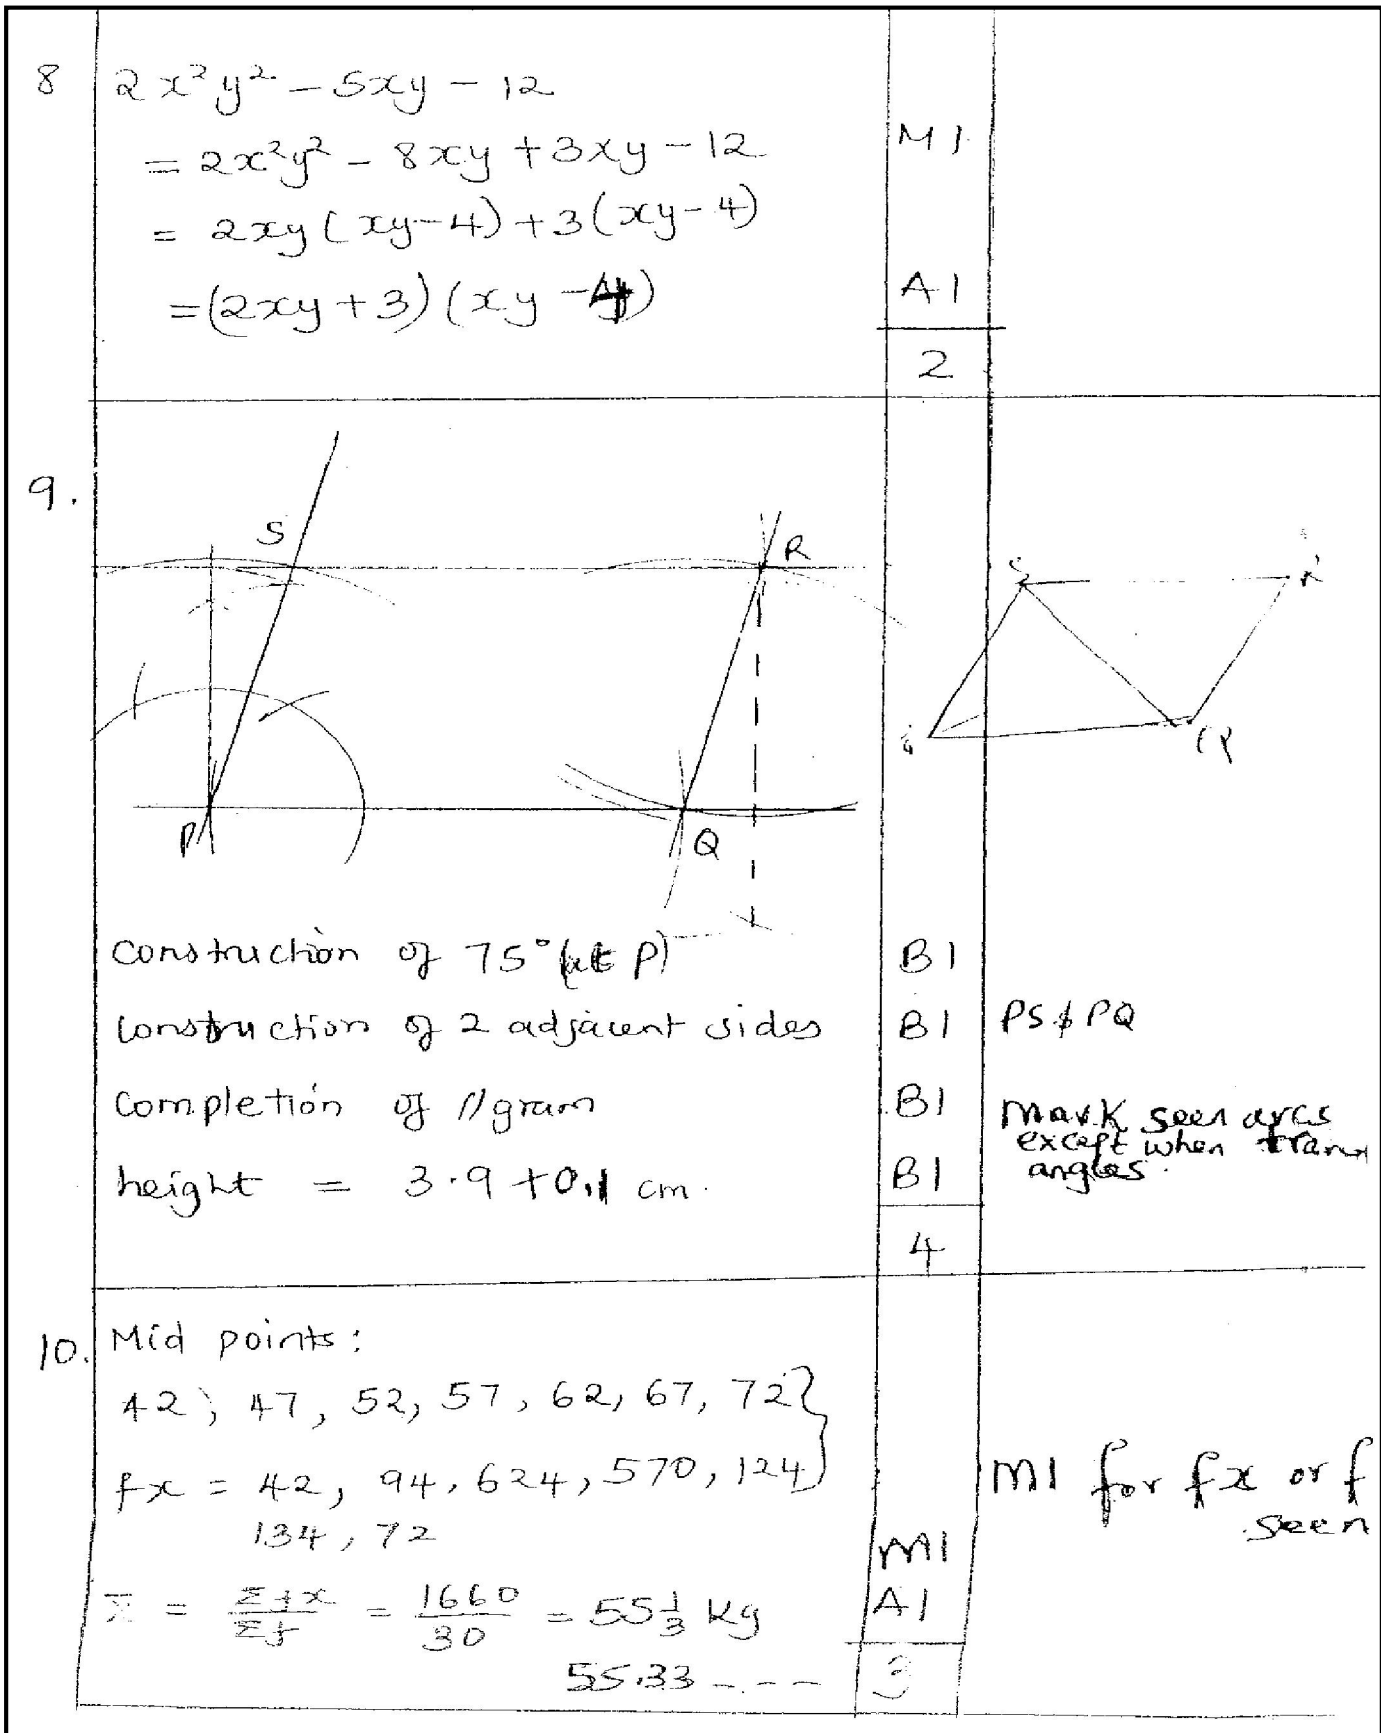 8 2x²y² - 5xy - 12
= 2x²y² - 8xy + 3xy - 12 M1
= 2xy(xy-4) + 3(xy-4)
= (2xy + 3)(xy - 4) A1
2
9.
S R
S R
P Q
Q
construction of 75° (at P) B1
construction of 2 adjacent sides B1 PS & PQ
completion of //gram B1 Mark seen arcs
except when
height = 3.9 ± 0.1 cm. B1 angles.
4
10. Mid points:
42, 47, 52, 57, 62, 67, 72}
fx = 42, 94, 624, 570, 124 M1 for fx or f
134, 72 seen
M1
x̄ = Σfx/Σf = 1660/30 = 55⅓ kg A1
55.33 - - - 3